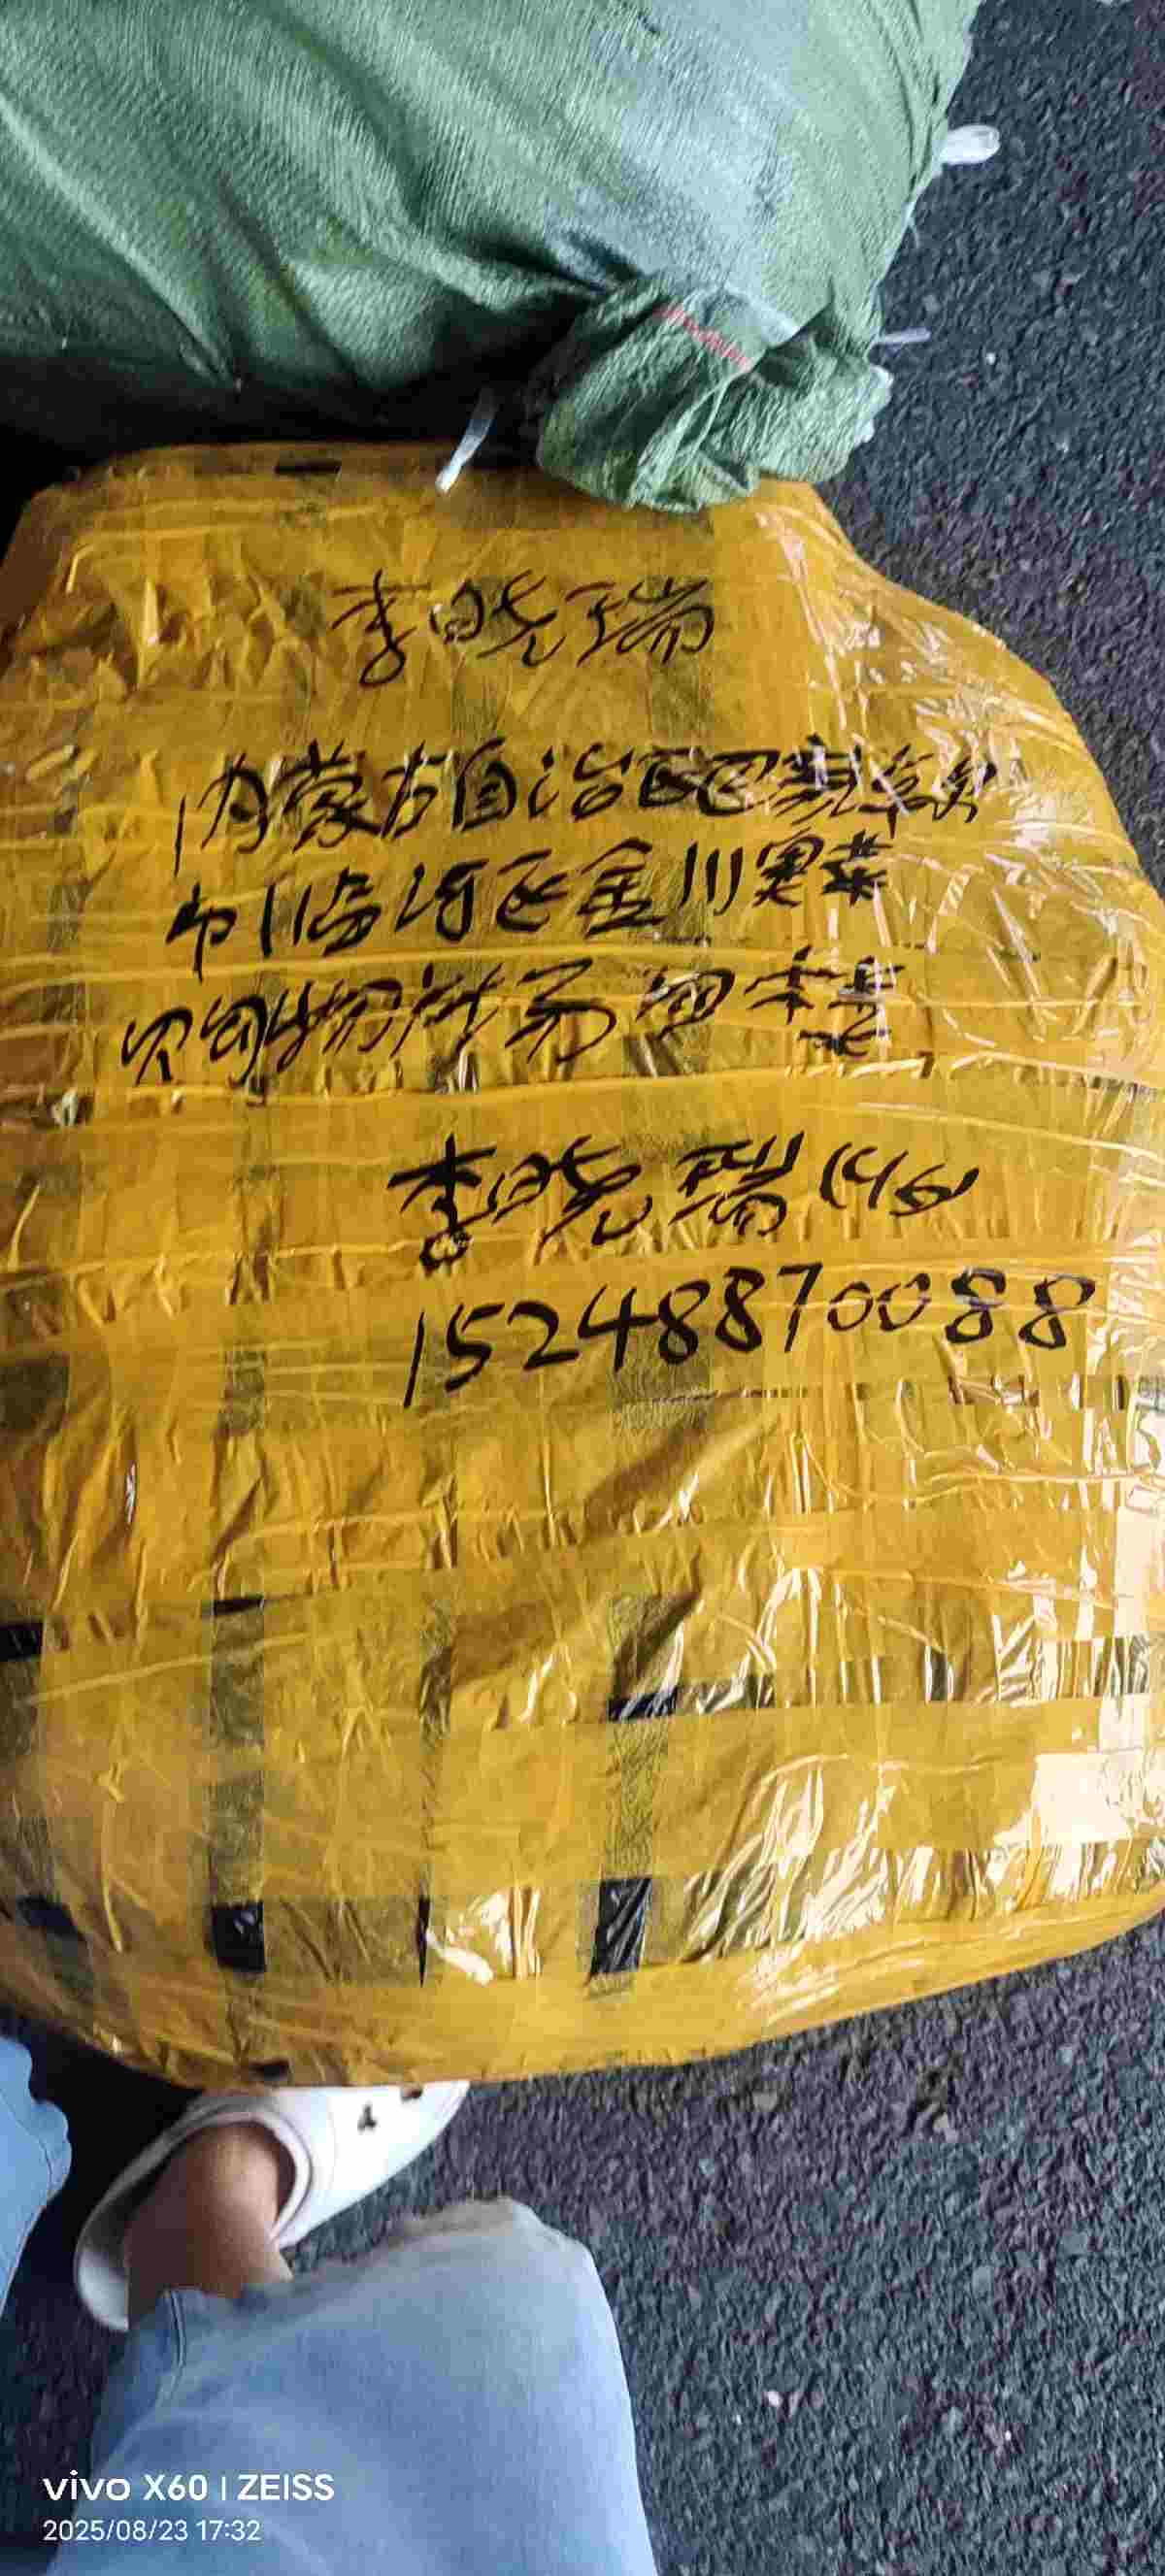 李晓瑞
内蒙古自治区巴彦淖尔
市临河区金川
物流
李晓瑞(收)
15248870088
vivo X60 | ZEISS
2025/08/23 17:32